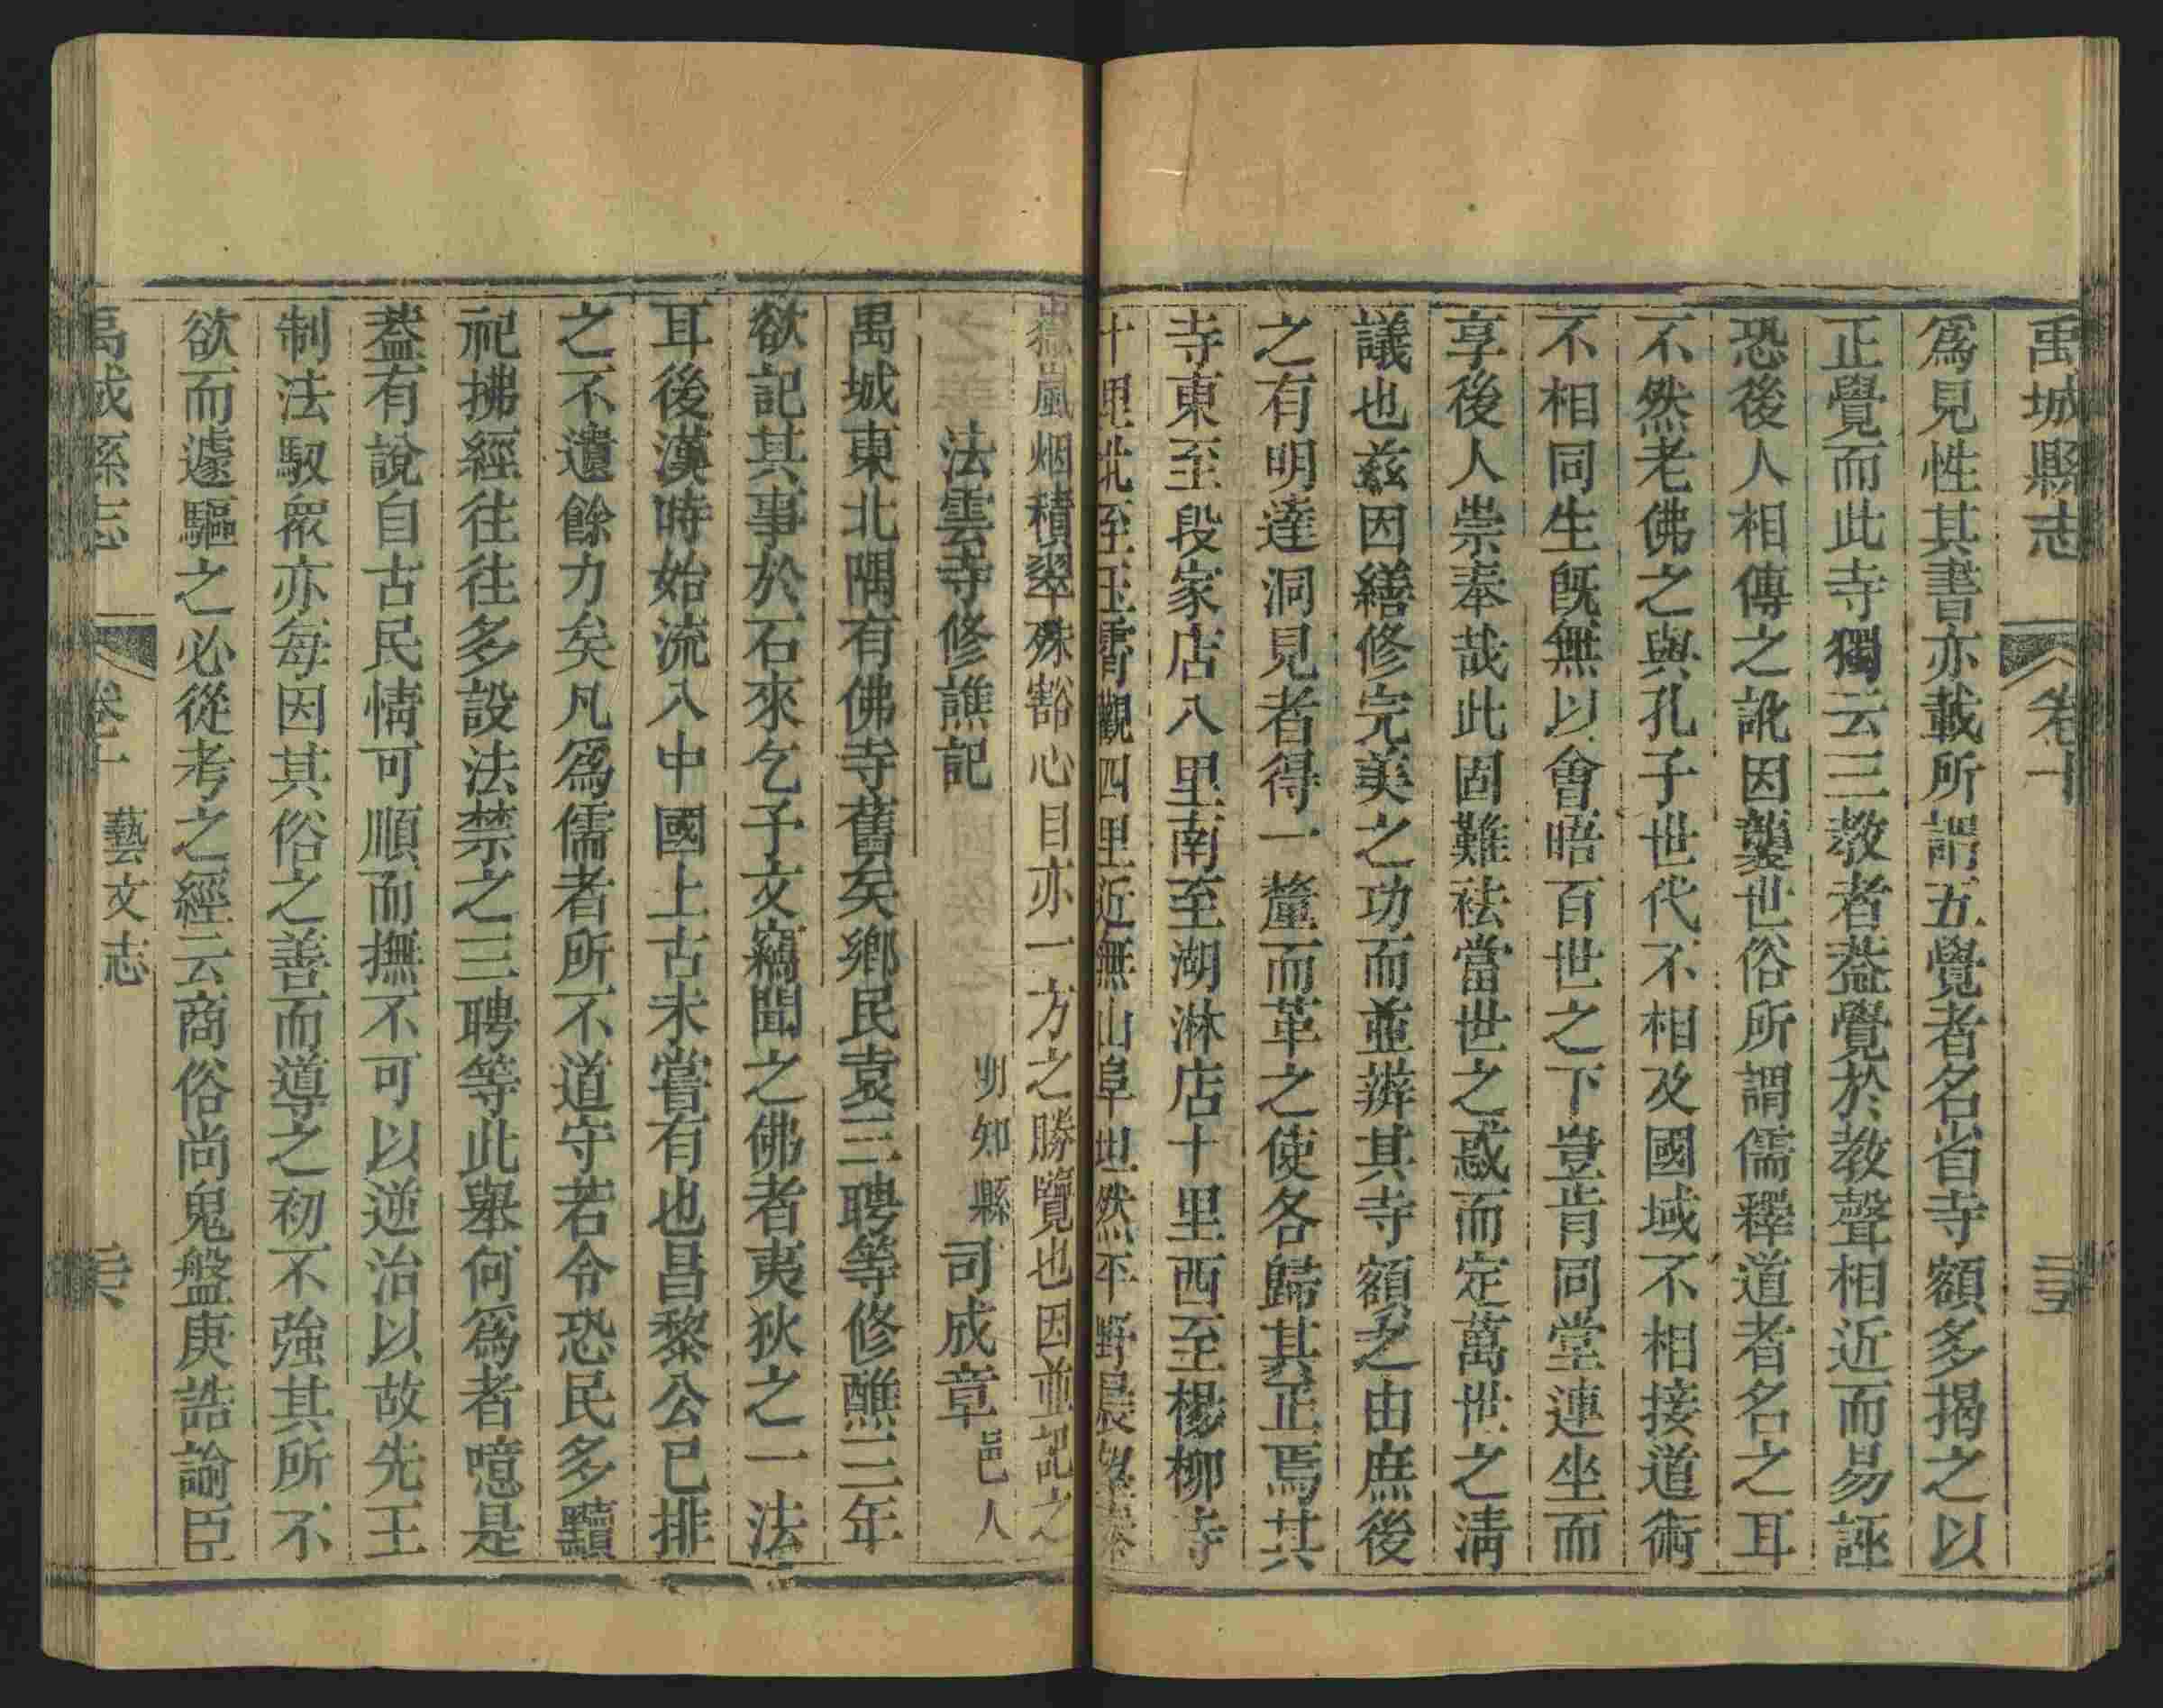 禹城縣志 卷十
爲見性其書亦載所謂五覺者名省寺額多揭之以
正覺而此寺獨云三教者葢覺於教聲相近而易誣
恐後人相傳之訛因襲世俗所謂儒釋道者名之耳
不然老佛之與孔子世代不相及國域不相接道術
不相同生旣無以會晤百世之下豈肯同堂連坐而
享後人崇奉哉此固難祛當世之惑而定萬世之淸
議也兹因繕修完美之功而並辨其寺額之由庶後
之有明達洞見者得一釐而革之使各歸其正焉其
寺東至段家店八里南至湖淋店十里西至楊柳寺
十里北至玉霄觀四里近無山阜坦然平野晨望泰
嶽嵐烟積翠殊豁心目亦一方之勝覽也因並記之
法雲寺修譙記 明知縣司成章邑人
禹城東北隅有佛寺舊矣鄉民袁三聘等修醮三年
欲記其事於石來乞予文竊聞之佛者夷狄之一法
耳後漢時始流入中國上古未嘗有也昌黎公已排
之不遺餘力矣凡爲儒者所不道守若令恐民多黷
祀拂經往往多設法禁之三聘等此舉何爲者噫是
葢有說自古民情可順而撫不可以逆治以故先王
制法馭衆亦每因其俗之善而導之初不強其所不
欲而遽驅之必從考之經云商俗尚鬼盤庚誥諭臣
禹城縣志 卷十 藝文志